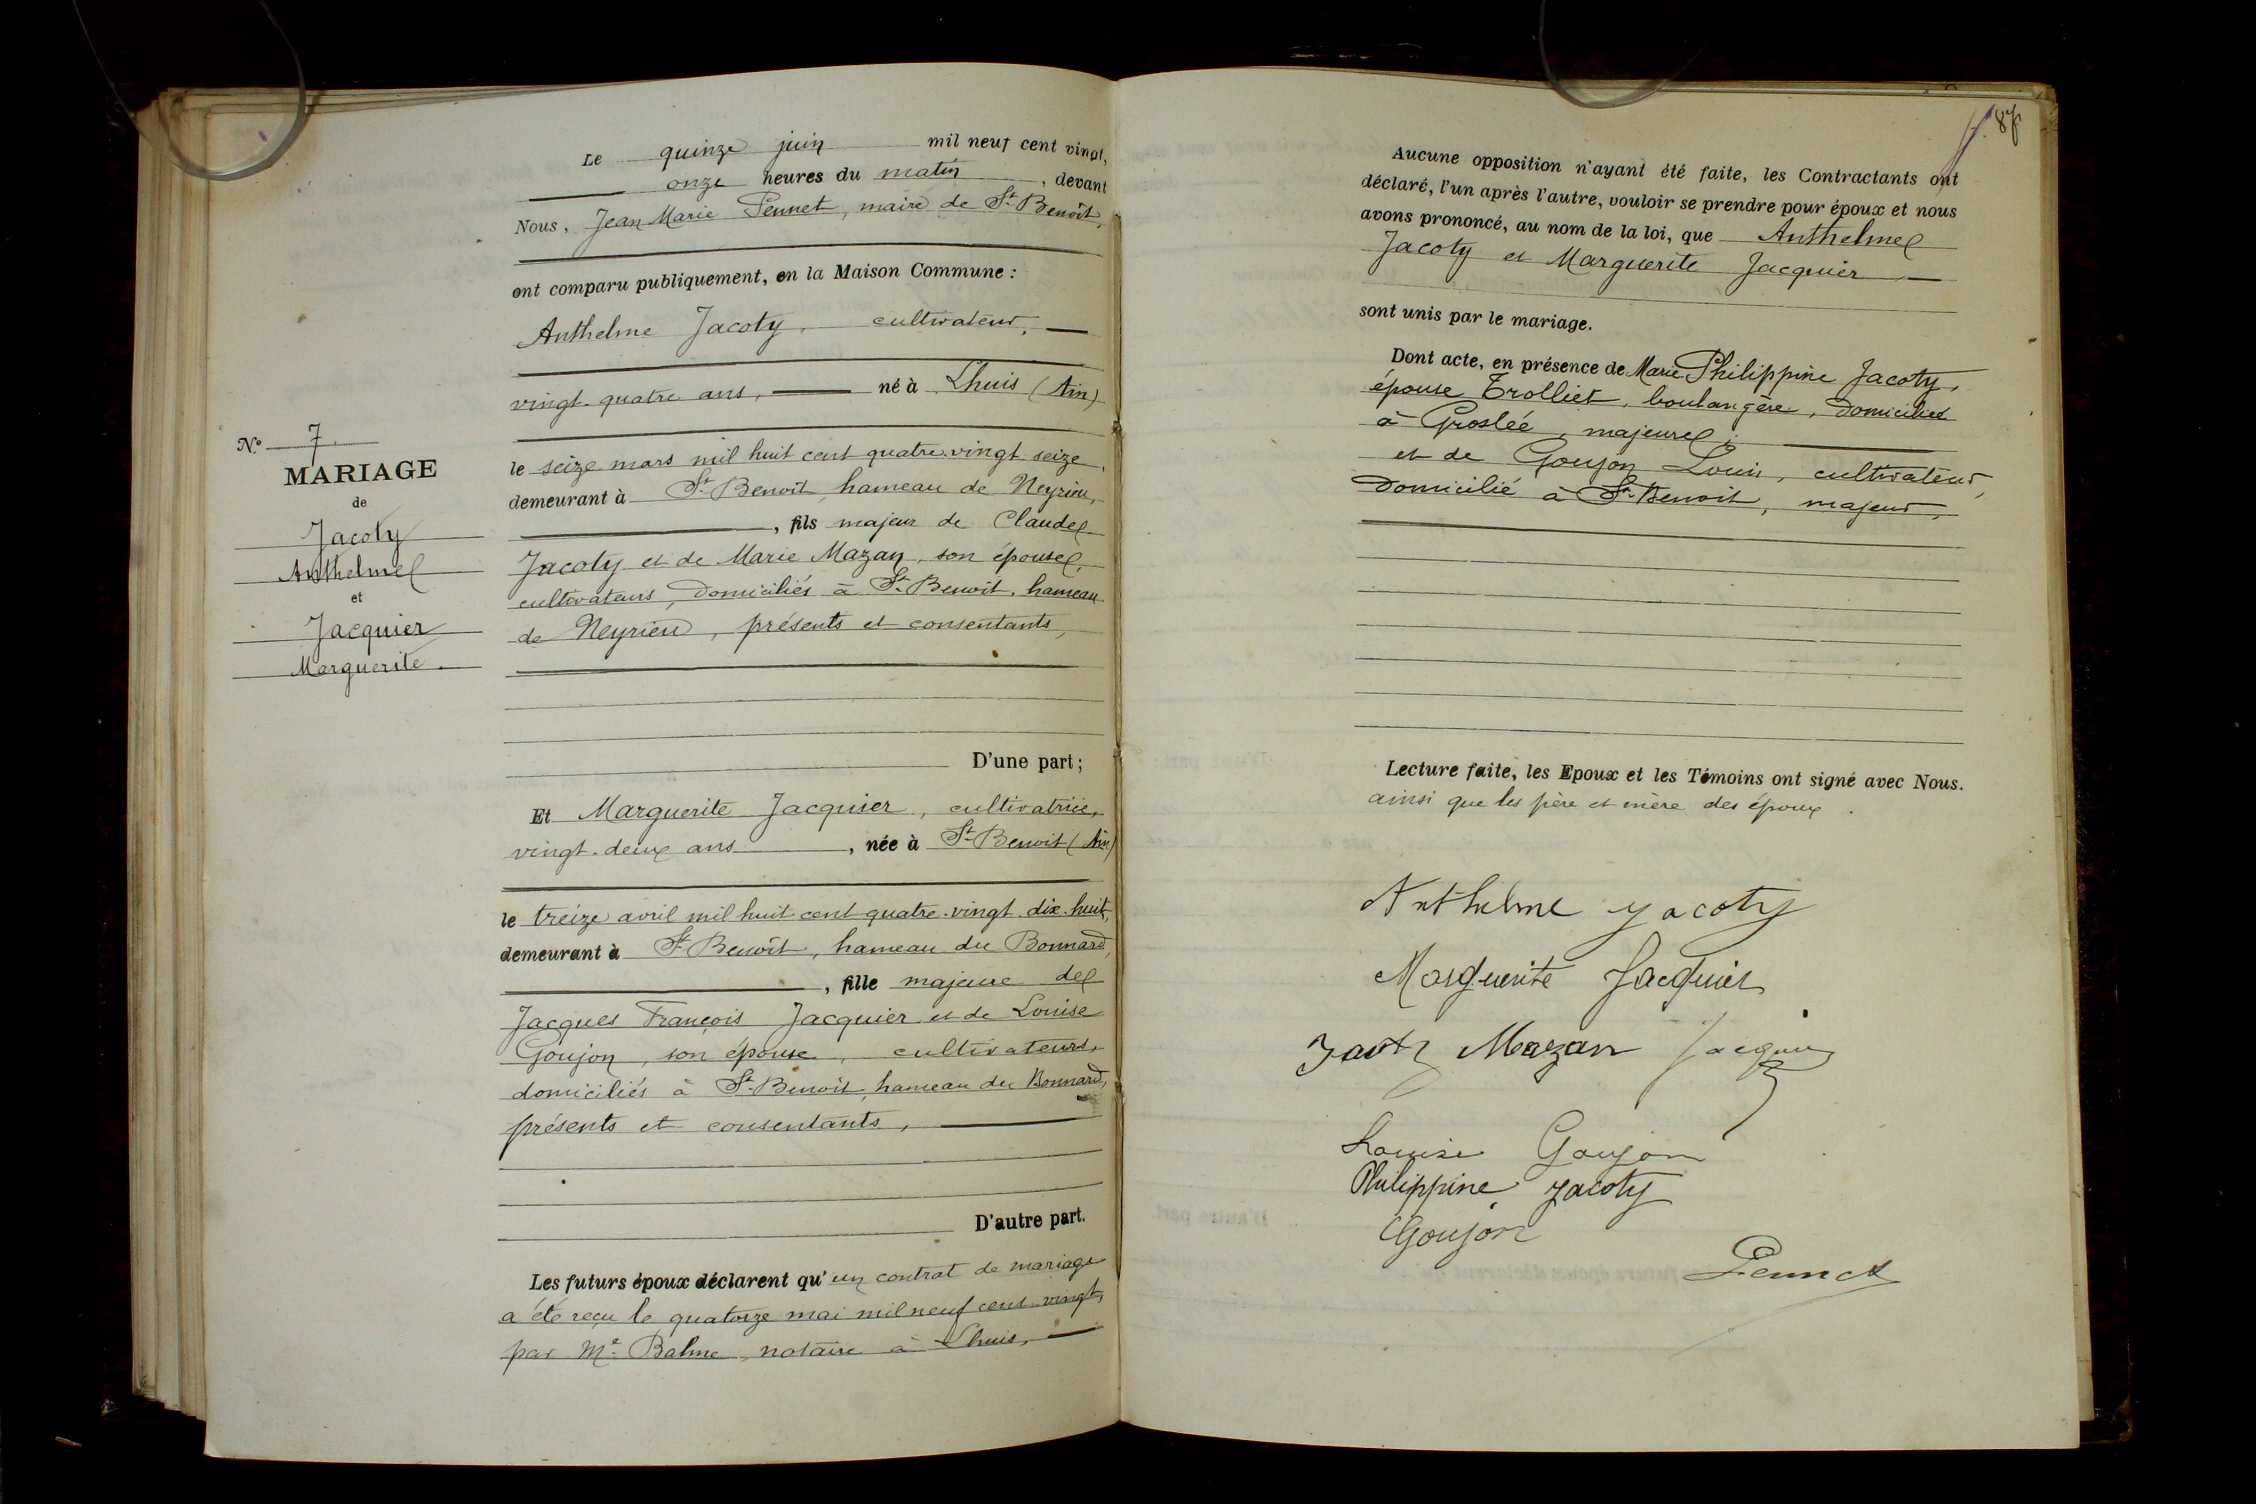 Le quinze juin mil neuf cent vingt,
onze heures du matin, devant
Nous, Jean Marie Pennet, maire de St Benoît,
ont comparu publiquement, en la Maison Commune :
Anthelme Jacoty, cultivateur,
vingt-quatre ans, né à Lhuis (Ain)
le seize mars mil huit cent quatre-vingt seize,
demeurant à St Benoît, hameau de Neyrieu,
, fils majeur de Claude
Jacoty et de Marie Mazan, son épouse,
cultivateurs, domiciliés à St Benoît, hameau
de Neyrieu, présents et consentants,
D'une part ;
N° 7
MARIAGE
de
Jacoty
Anthelme
et
Jacquier
Marguerite.
Et Marguerite Jacquier, cultivatrice,
vingt-deux ans, née à St Benoit (Ain)
le treize avril mil huit cent quatre-vingt dix-huit,
demeurant à St Benoît, hameau du Bonnard,
, fille majeure de
Jacques François Jacquier et de Louise
Goujon, son épouse, cultivateurs,
domiciliés à St Benoit, hameau du Bonnard,
présents et consentants,
D'autre part.
Les futurs époux déclarent qu'un contrat de mariage
a été reçu le quatorze mai mil neuf cent vingt,
par Me Balme, notaire à Lhuis,
f. 87
Aucune opposition n'ayant été faite, les Contractants ont
déclaré, l'un après l'autre, vouloir se prendre pour époux et nous
avons prononcé, au nom de la loi, que Anthelme
Jacoty et Marguerite Jacquier
sont unis par le mariage.
Dont acte, en présence de Marie Philippine Jacoty,
épouse Trolliet, boulangère, domiciliée
à Groslée, majeure ;
et de Goujon Louis, cultivateur,
domicilié à St Benoit, majeur,
Lecture faite, les Epoux et les Témoins ont signé avec Nous.
ainsi que les père et mère des époux.
Anthelme Jacoty
Marguerite Jacquier
Jacoty Mazan Jacquier
Louise Goujon
Philippine Jacoty
Goujon
Pennet